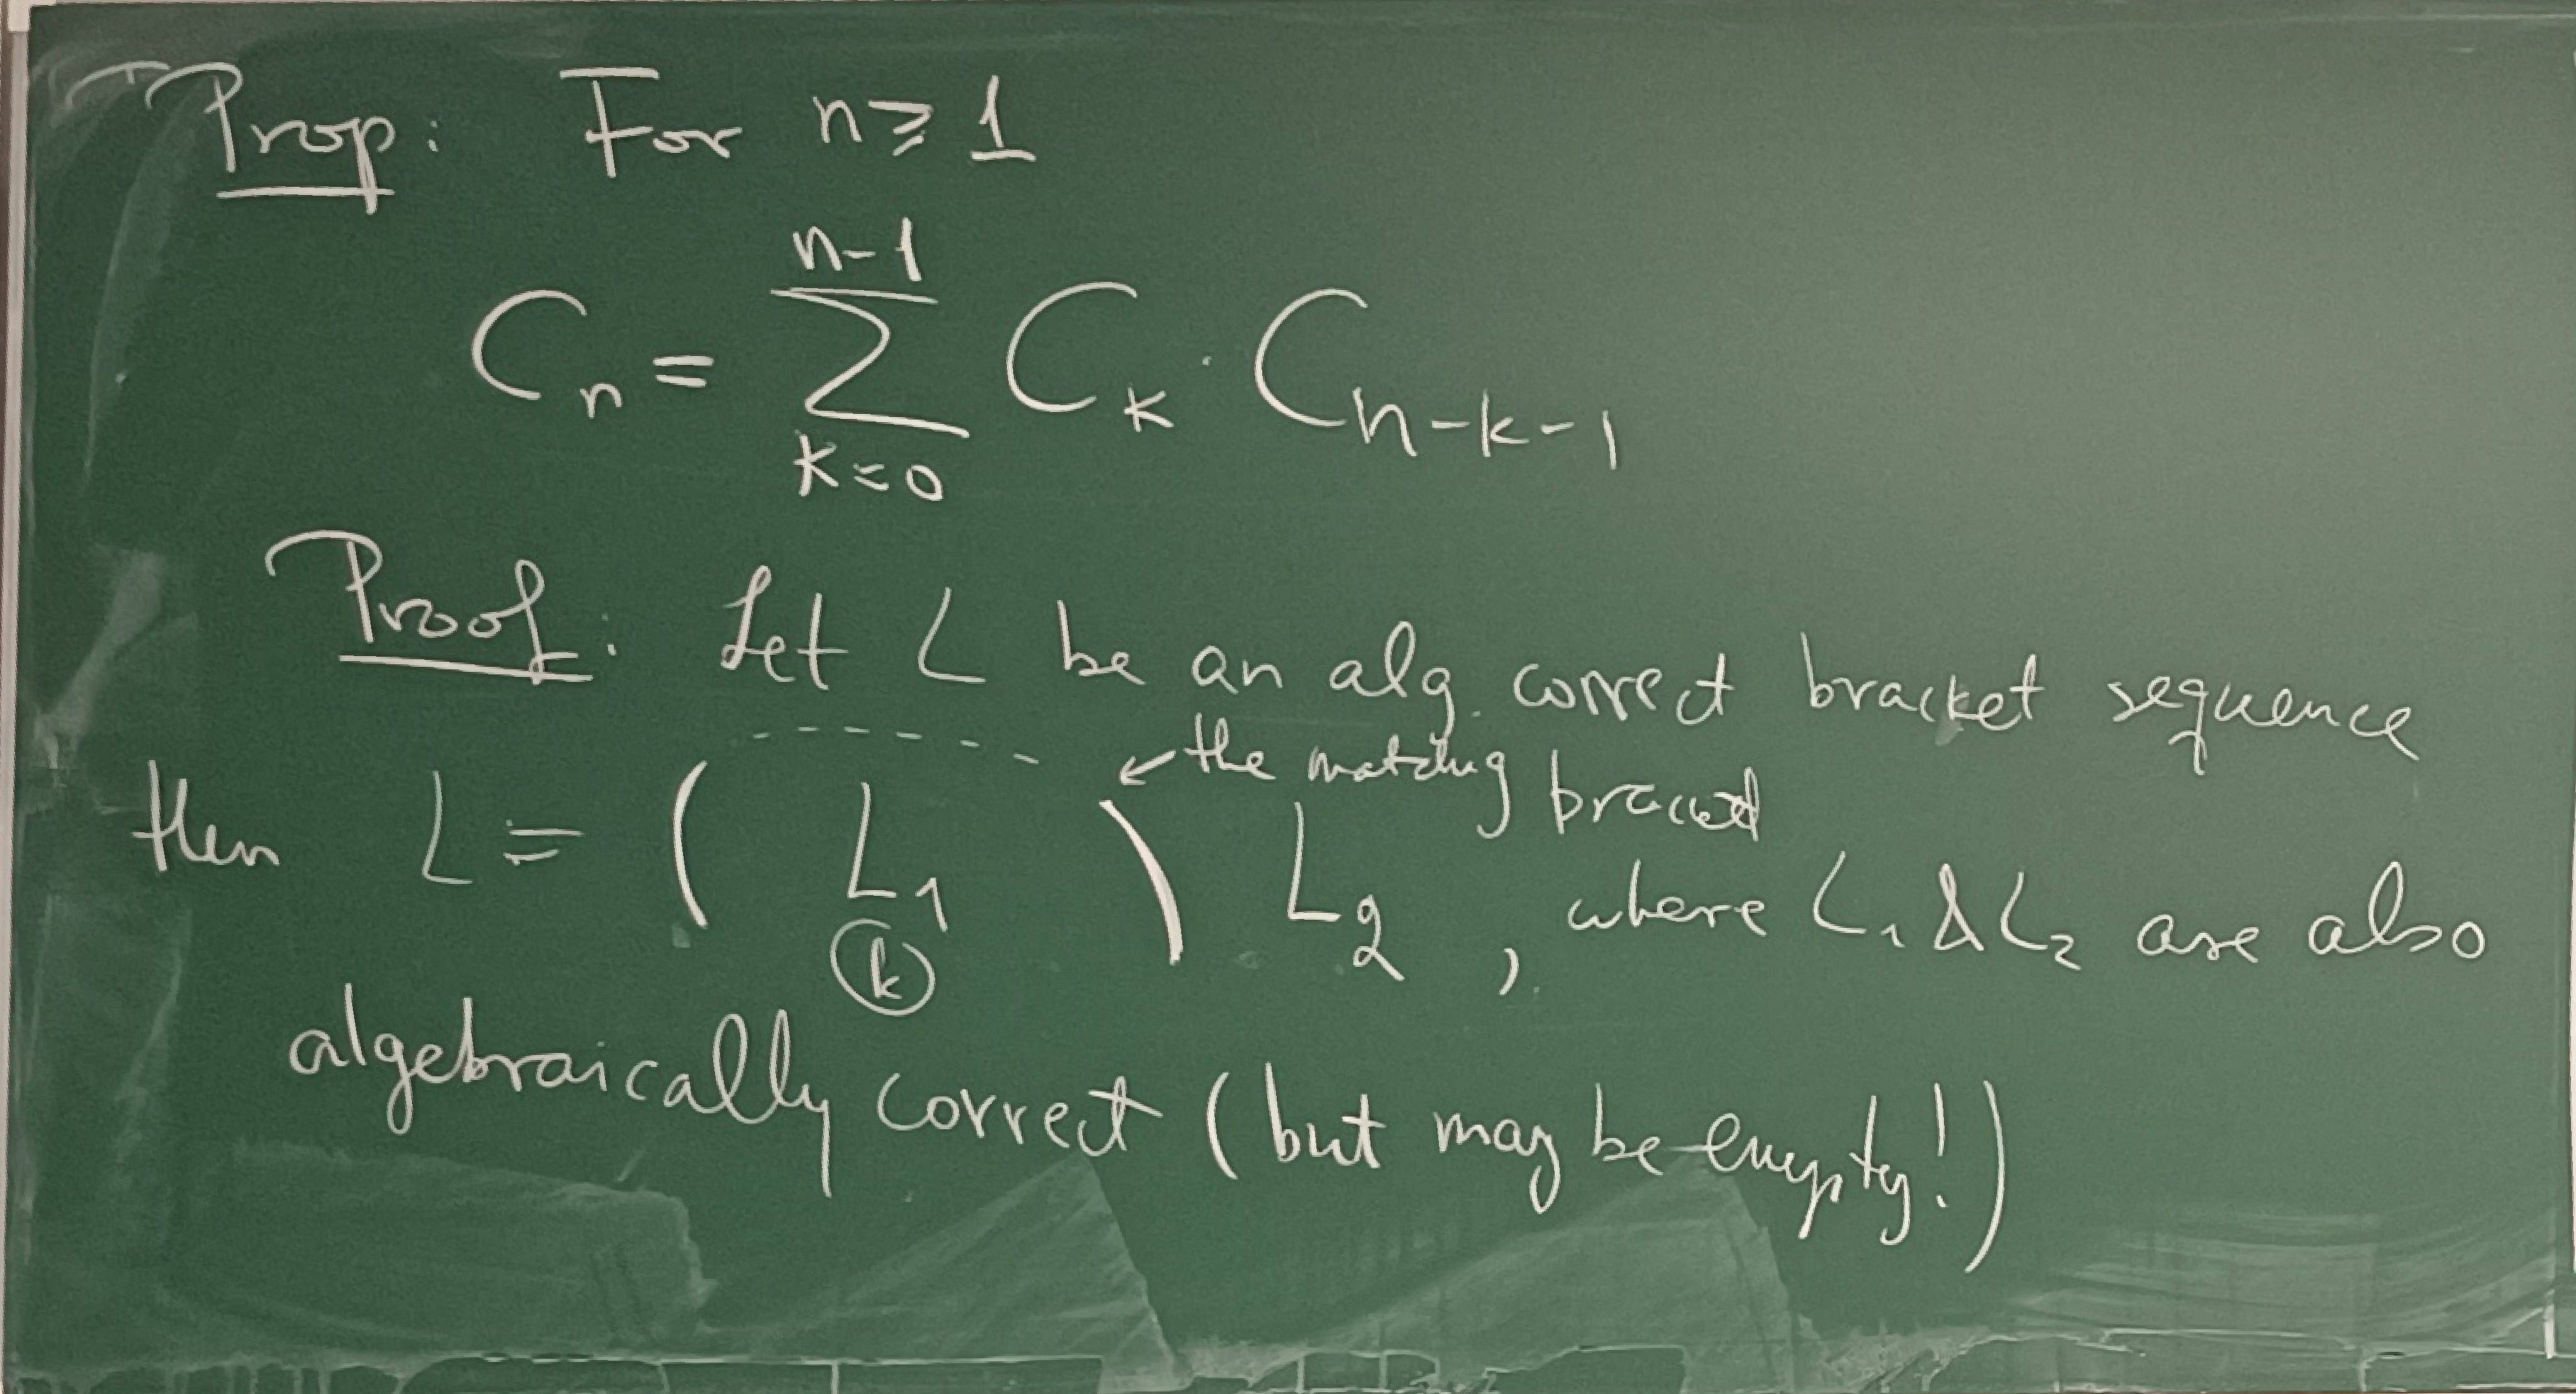 Prop: For n ≥ 1
C_n = \sum_{k=0}^{n-1} C_k · C_{n-k-1}
Proof: Let L be an alg. correct bracket sequence
← the matching
then L = ( L_1 ) L_2 , where L_1 & L_2 are also
ⓚ
algebraically correct (but may be empty!)